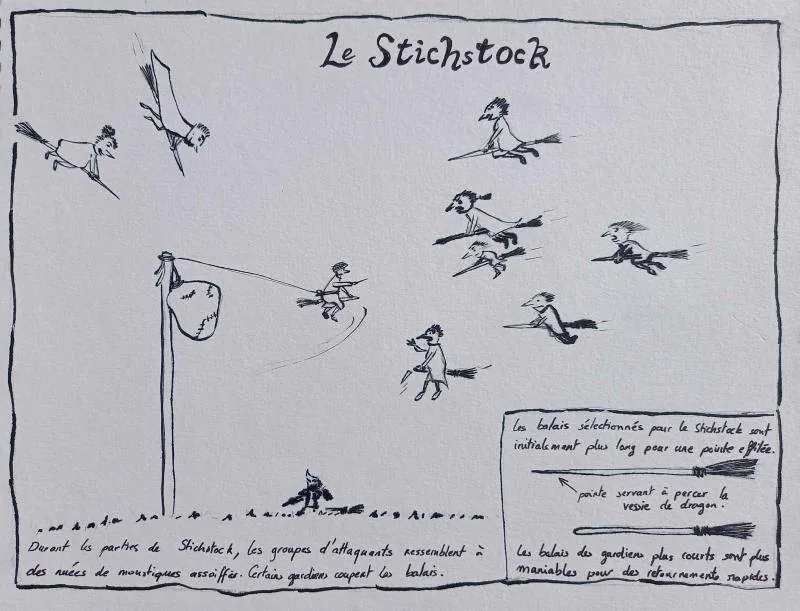 Le Stichstock
Les balais sélectionnés pour le Stichstock sont
initialement plus long pour une pointe effilée.
pointe servant à percer la
vessie de dragon.
Les balais des gardiens plus courts sont plus
maniables pour des retournements rapides.
Durant les parties de Stichstock, les groupes d'attaquants ressemblent à
des nuées de moustiques assoiffés. Certains gardiens coupent les balais.